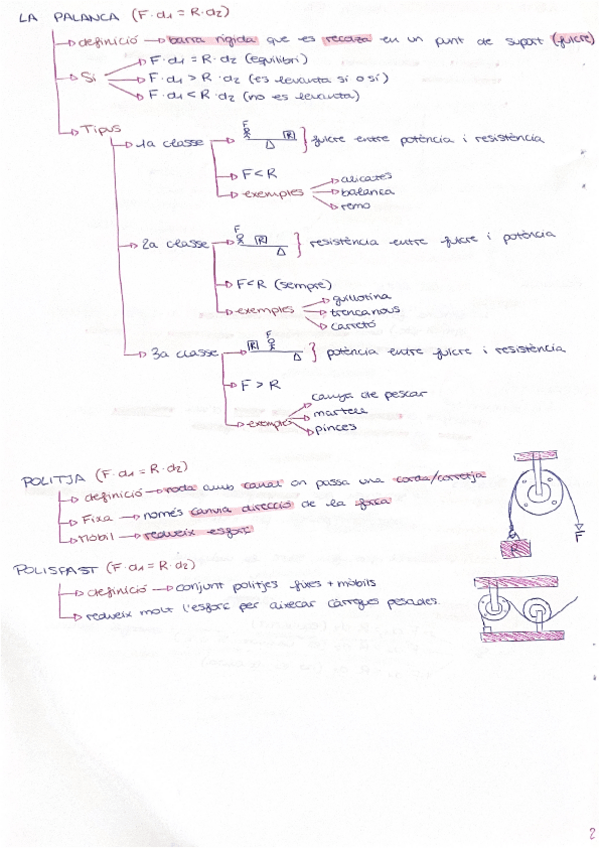 LA PALANCA (F·d1 = R·d2)
definició → barra rígida que es recolza en un punt de suport (fulcre)
Si
F·d1 = R·d2 (equilibri)
F·d1 > R·d2 (es levanta sí o sí)
F·d1 < R·d2 (no es levanta)
Tipus
1a classe
F R } fulcre entre potència i resistència
F < R
exemples
alicates
balança
remo
2a classe
F R } resistència entre fulcre i potència
F < R (sempre)
exemples
guillotina
trencanous
carretó
3a classe
R F } potència entre fulcre i resistència
F > R
exemples
canya de pescar
martell
pinces
POLITJA (F·d1 = R·d2)
definició → roda amb canal on passa una corda/corretja
Fixa → només canvia direcció de la força
Mòbil → redueix esforç
F
R
POLISPAST (F·d1 = R·d2)
definició → conjunt politjes fixes + mòbils
redueix molt l'esforç per aixecar càrregues pesades.
2